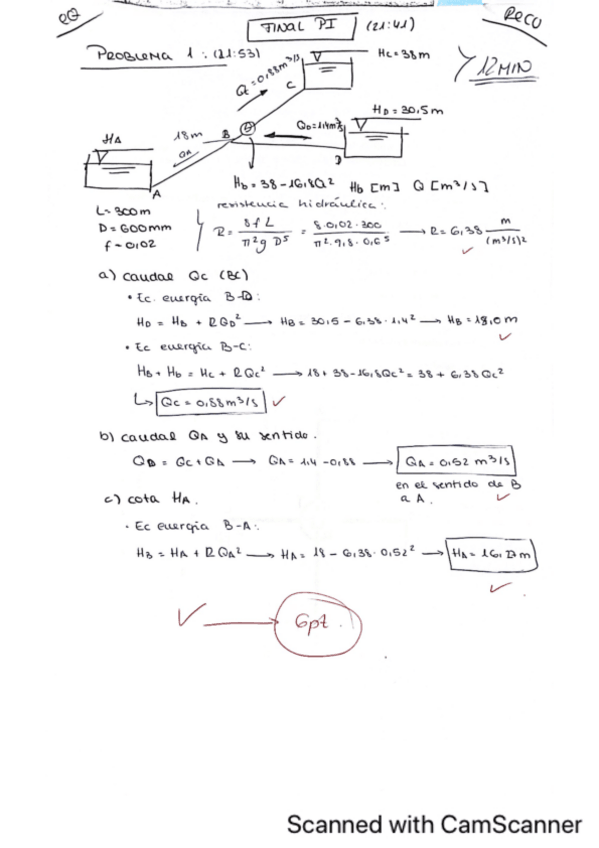 eQ
FINAL PI (21:41)
RECU
PROBLEMA 1: (21:53)
Qc = 0,88m³/s
Hc = 38m
12 MIN
C
HD = 30,5m
HA
18m
B
QD = 1,4m³/s
QA
D
A
Hb = 38 - 16,8Q² Hb [m] Q [m³/s]
L = 300m
D = 600mm
f = 0,02
resistencia hidráulica:
R = 8fL / π²g D⁵ = 8·0,02·300 / π²·9,8·0,6⁵ → R = 6,38 m/(m³/s)²
a) caudal Qc (BC)
• Ec. energía B-D:
HD = HB + RQD² → HB = 30,5 - 6,38·1,4² → HB = 18,0m
• Ec energía B-C:
HB + Hb = Hc + RQc² → 18 + 38 - 16,8Qc² = 38 + 6,38Qc²
↳ Qc = 0,88m³/s
b) caudal QA y su sentido.
QD = Qc + QA → QA = 1,4 - 0,88 → QA = 0,52 m³/s
en el sentido de B
a A.
c) cota HA.
• Ec energía B-A:
HB = HA + RQA² → HA = 18 - 6,38·0,52² → HA = 16,27m
6pt.
Scanned with CamScanner